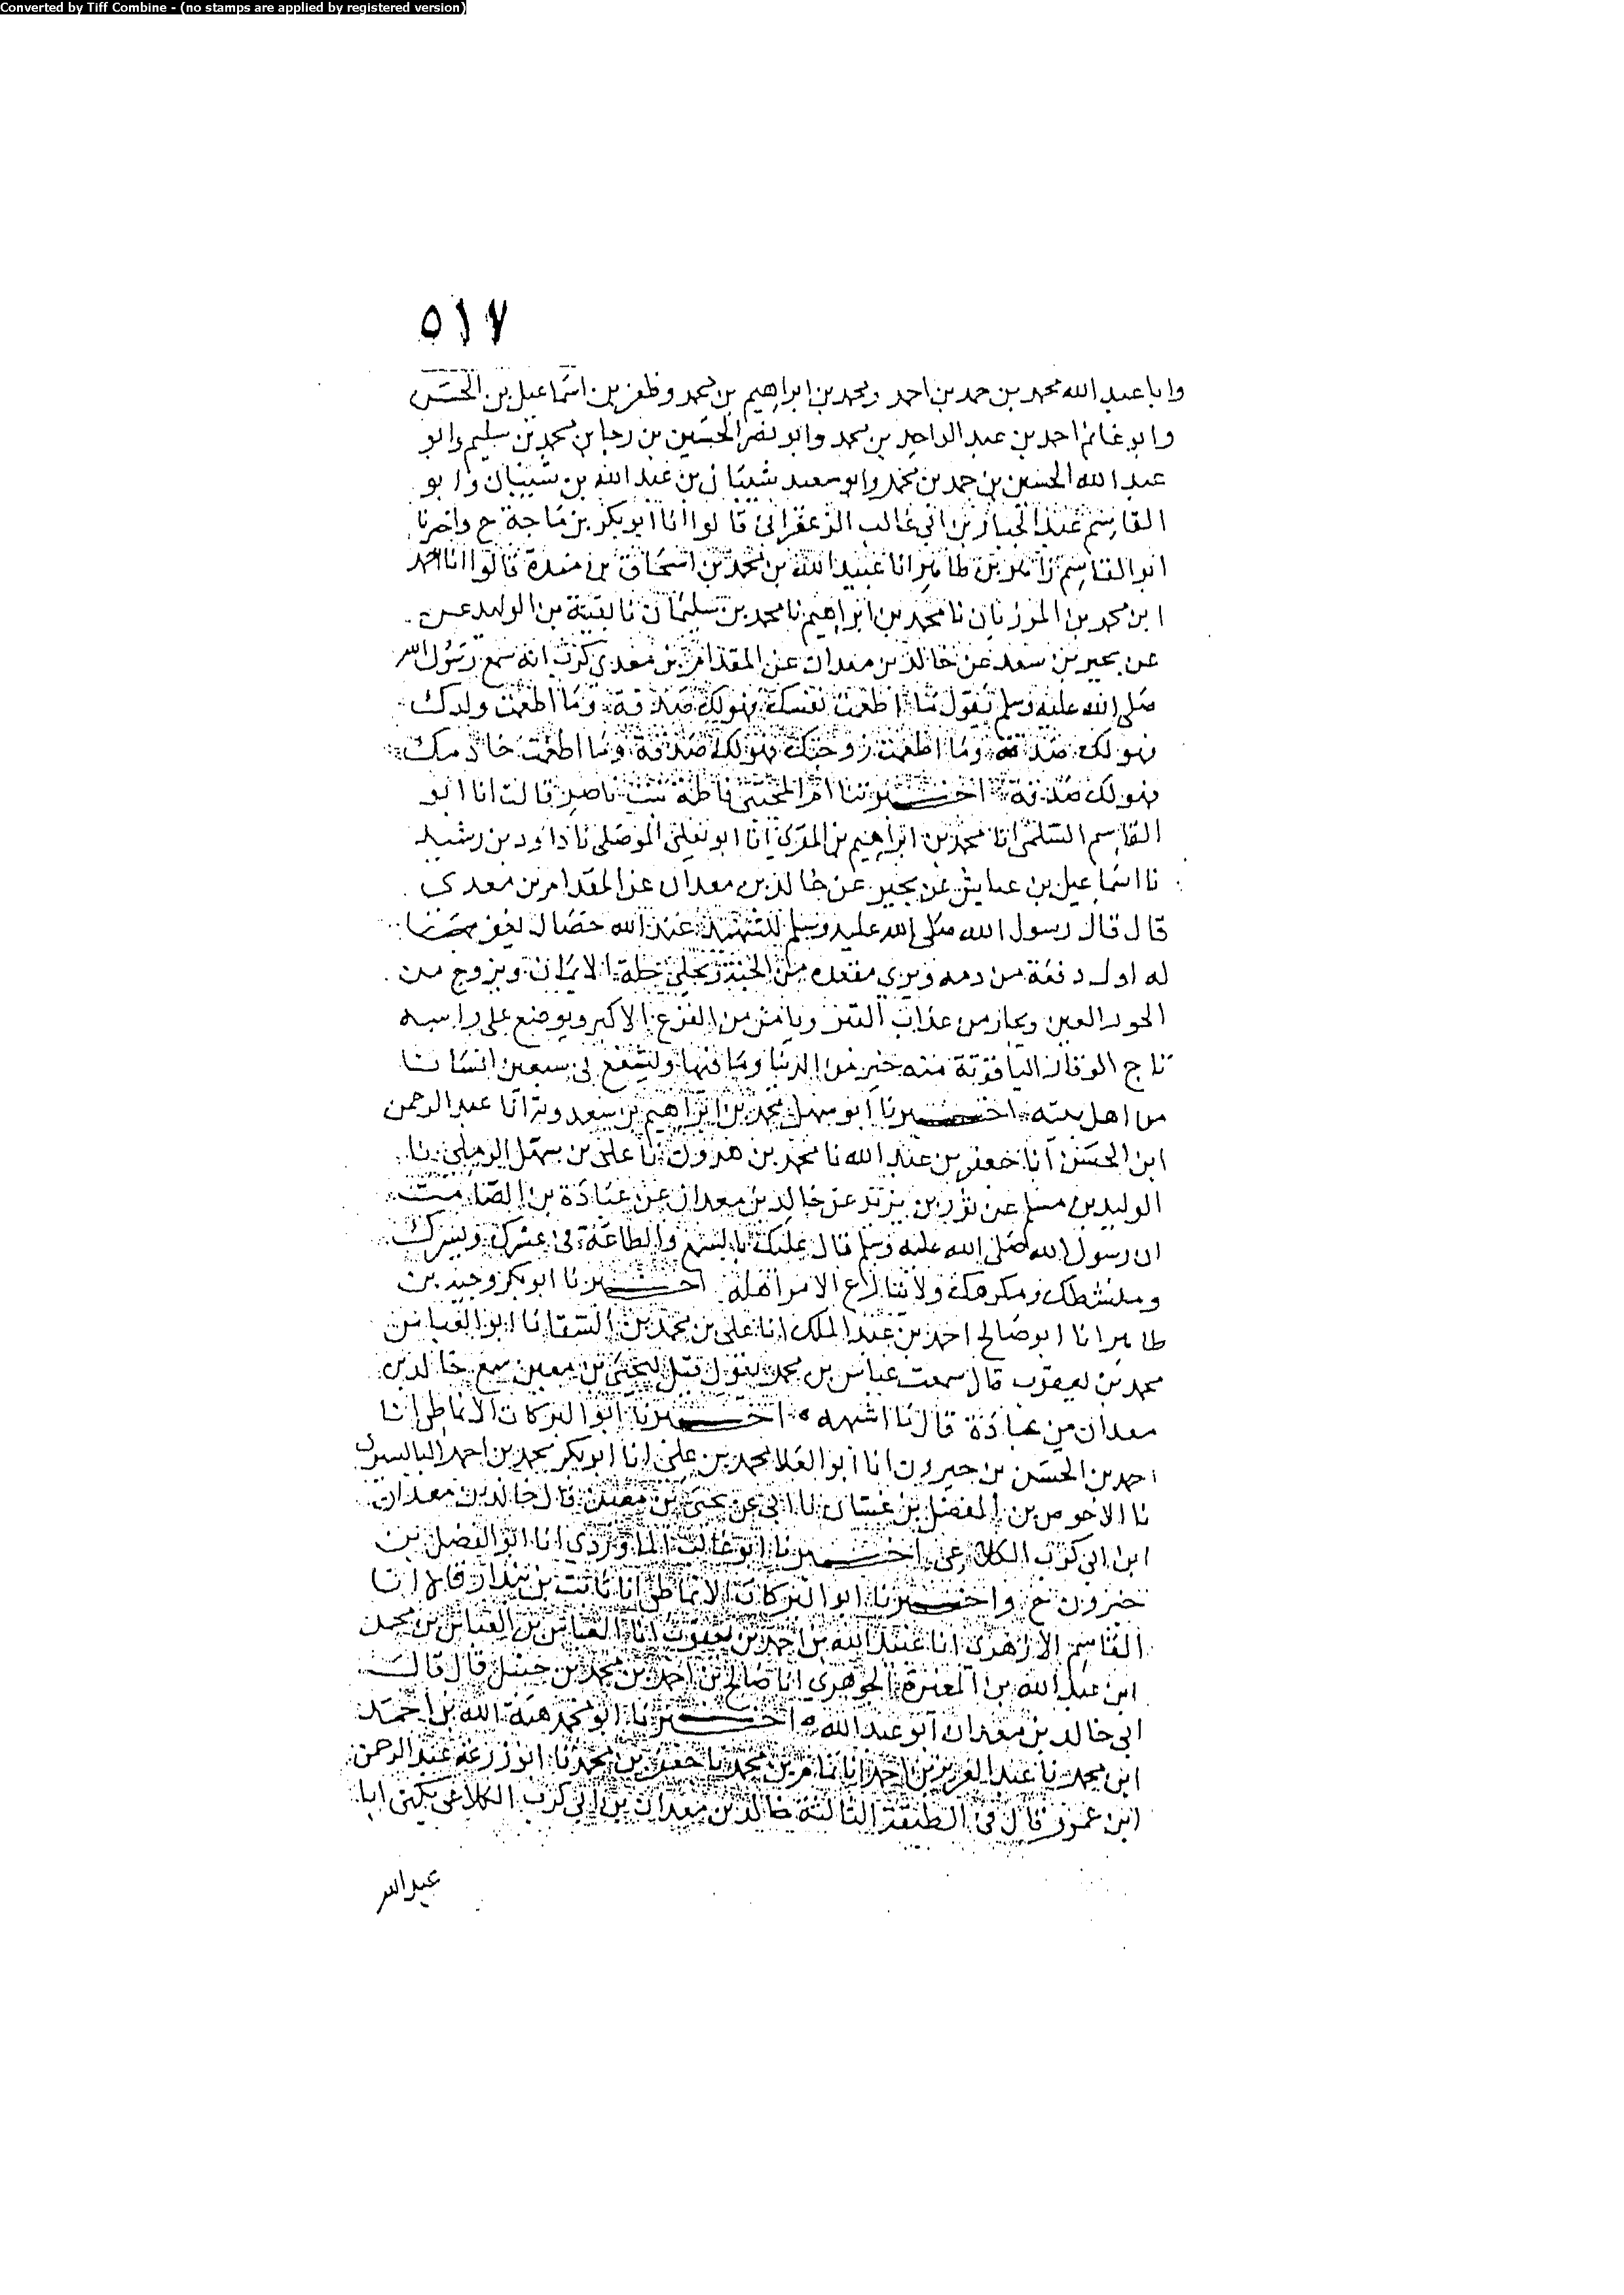 Converted by Tiff Combine - (no stamps are applied by registered version)
٥١٧
وابا عبد الله محمد بن حمد بن احمد ومحمد بن ابراهيم بن محمد وظفر بن اسماعيل بن الحسن
وابو غانم احمد بن عبد الواحد بن محمد وابو نصر الحسين بن رجا بن محمد بن سليم وابو
عبد الله الحسين بن حمد بن محمد وابو سعيد شيبان بن عبد الله بن شيبان وابو
القاسم عبد الجبار بن ابي غالب الزعفراني قالوا انا ابو بكر بن ماجة ح واخبرنا
ابو القاسم زاهر بن طاهر انا عبيد الله بن محمد بن اسحاق بن مندة قالوا انا احمد
ابن محمد بن المرزبان نا محمد بن ابراهيم نا محمد بن سليمان نا بقية بن الوليد عن
عن بحير بن سعد عن خالد بن معدان عن المقدام بن معدي كرب انه سمع رسول الله
صلى الله عليه وسلم يقول ما اطعمت نفسك فهو لك صدقة وما اطعمت ولدك
فهو لك صدقة وما اطعمت زوجتك فهو لك صدقة وما اطعمت خادمك
فهو لك صدقة اخبرتنا ام المجتبى فاطمة بنت ناصر قالت انا ابو
القاسم السلمي انا محمد بن ابراهيم بن المقرئ انا ابو يعلى الموصلي نا داود بن رشيد
نا اسماعيل بن عياش عن بحير عن خالد بن معدان عن المقدام بن معدي
قال قال رسول الله صلى الله عليه وسلم للشهيد عند الله خصال يغفر
له اول دفعة من دمه ويرى مقعده من الجنة ويحلى حلة الايمان ويزوج من
الحور العين ويجار من عذاب القبر ويامن من الفزع الاكبر ويوضع على راسه
تاج الوقار الياقوتة منه خير من الدنيا وما فيها ويشفع في سبعين انسانا
من اهل بيته اخبرنا ابو سهل محمد بن ابراهيم بن سعدويه انا عبد الرحمن
ابن الحسن انا جعفر بن عبد الله نا محمد بن هرون نا علي بن سهل الرملي نا
الوليد بن مسلم عن ثور بن يزيد عن خالد بن معدان عن عبادة بن الصامت
ان رسول الله صلى الله عليه وسلم قال عليك بالسمع والطاعة في عسرك ويسرك
ومنشطك ومكرهك ولا تنازع الامر اهله اخبرنا ابو بكر وجيه بن
طاهر انا ابو صالح احمد بن عبد الملك انا علي بن محمد بن السقا نا ابو العباس
محمد بن يعقوب قال سمعت عباس بن محمد يقول قيل ليحيى بن معين سمع خالد بن
معدان من عبادة قال ما اشبهه اخبرنا ابو البركات الانماطي انا
احمد بن الحسن بن خيرون انا ابو العلا محمد بن علي انا ابو بكر محمد بن احمد البابسيري
نا الاحوص بن المفضل بن غسان نا ابي عن يحيى بن معين قال خالد بن معدان
ابن ابي كرب الكلاعي اخبرنا ابو غالب الماوردي انا ابو الفضل بن
خيرون ح واخبرنا ابو البركات الانماطي انا ثابت بن بندار قالا انا
القاسم الازهري انا عبيد الله بن احمد بن يعقوب انا العباس بن العباس بن محمد
ابن عبد الله بن المغيرة الجوهري انا صالح بن احمد بن محمد بن حنبل قال قال
ابي خالد بن معدان ابو عبد الله اخبرنا ابو محمد هبة الله بن احمد
ابن محمد نا عبد العزيز بن احمد انا تمام بن محمد نا جعفر بن محمد نا ابو زرعة عبد الرحمن
ابن عمرو قال في الطبقة الثالثة خالد بن معدان بن ابي كرب الكلاعي يكنى ابا
عبد الله